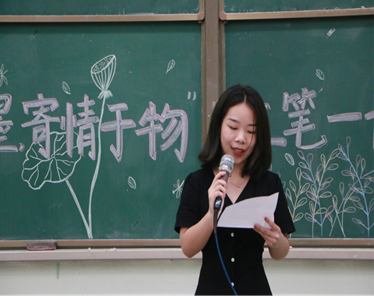 墨寄情于物" 笔一